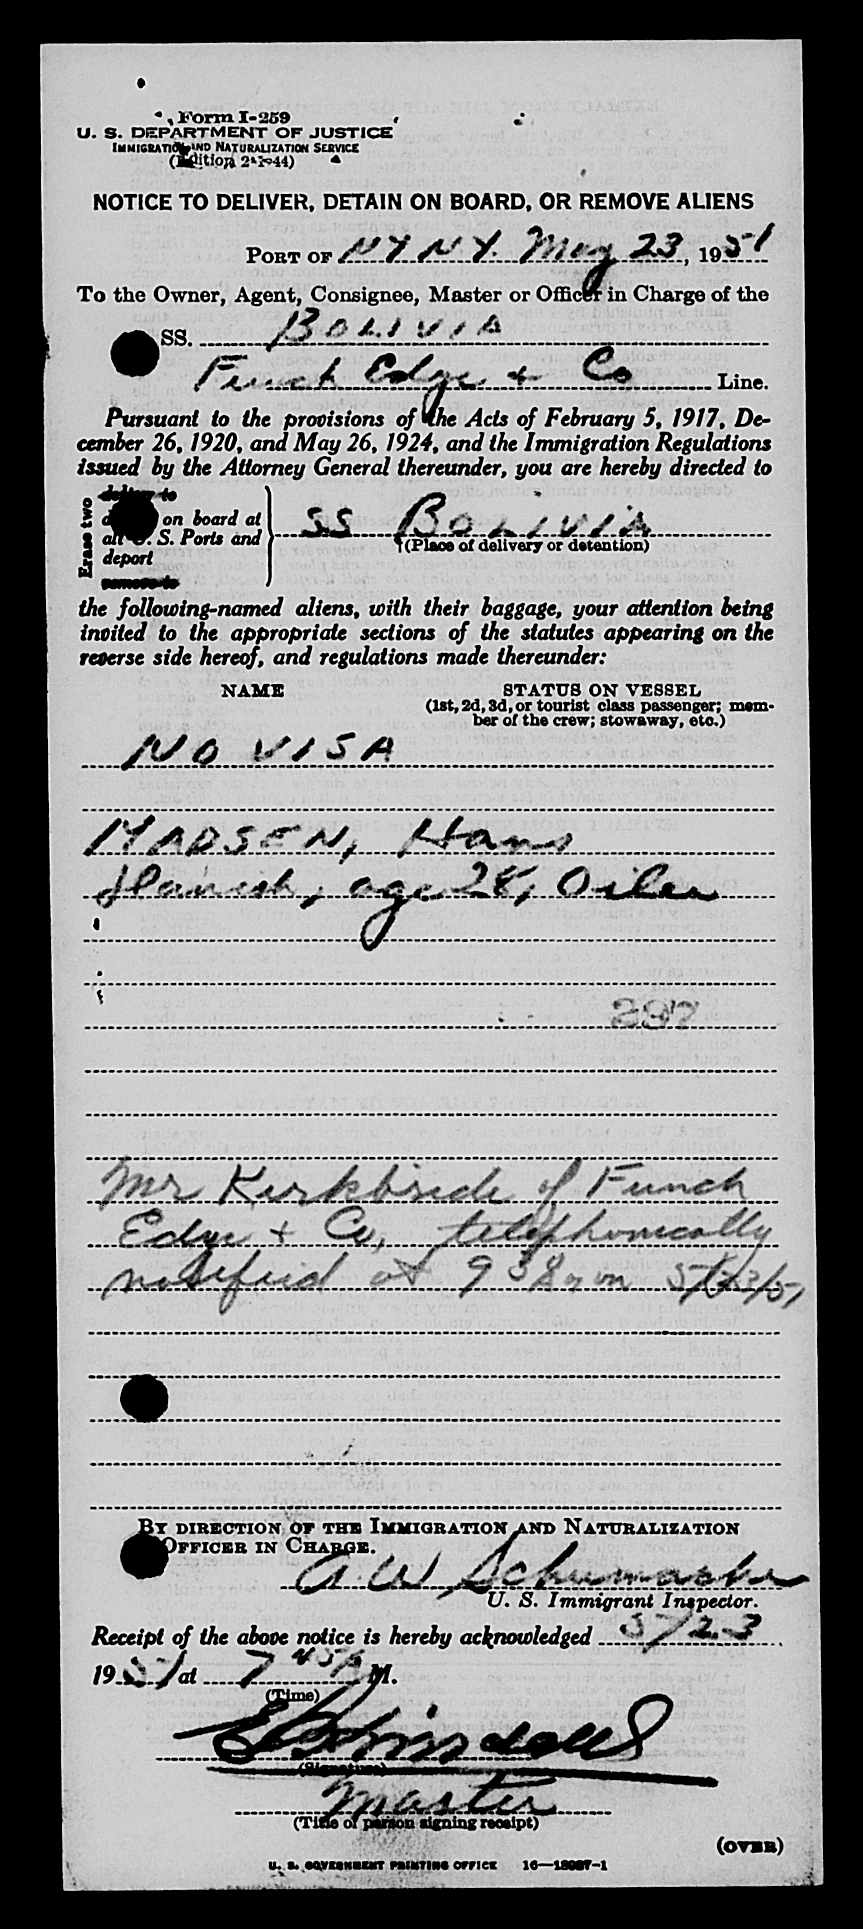 Form I-259
U. S. DEPARTMENT OF JUSTICE
IMMIGRATION AND NATURALIZATION SERVICE
(Edition 2-1-44)
NOTICE TO DELIVER, DETAIN ON BOARD, OR REMOVE ALIENS
PORT OF NY NY. May 23, 1951
To the Owner, Agent, Consignee, Master or Officer in Charge of the
SS. BOLIVIA
Funch Edge & Co Line.
Pursuant to the provisions of the Acts of February 5, 1917, De-
cember 26, 1920, and May 26, 1924, and the Immigration Regulations
issued by the Attorney General thereunder, you are hereby directed to
Erase two
deliver to
on board at
all U. S. Ports and
deport
remove to
SS BOLIVIA
(Place of delivery or detention)
the following-named aliens, with their baggage, your attention being
invited to the appropriate sections of the statutes appearing on the
reverse side hereof, and regulations made thereunder:
NAME STATUS ON VESSEL
(1st, 2d, 3d, or tourist class passenger; mem-
ber of the crew; stowaway, etc.)
NO VISA
MADSEN, Hans
Danish, age 28, Oiler
287
Mr Kirkbride of Funch
Edge & Co, telephonically
notified at 9 38 on 5/23/51
BY DIRECTION OF THE IMMIGRATION AND NATURALIZATION
OFFICER IN CHARGE.
A W Schumacher
U. S. Immigrant Inspector.
Receipt of the above notice is hereby acknowledged 5/23
1951 at 7 45 A M.
(Time)
(Signature)
Master
(Title of person signing receipt)
(OVER)
U. S. GOVERNMENT PRINTING OFFICE 16—13987-1